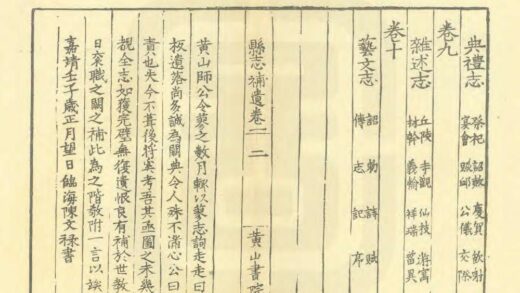 典禮志
祭祀 詔赦 慶賀 飲射
宴會 賑卹 公儀 交際
卷九
雜述志
丘陵 寺觀 仙技
材幹 義輸 祥瑞
卷十
藝文志
詔 勅 詩 賦
傳 志 記 序
縣志補遺卷一 二 黃山書院
黃山師公令蓼之數月輒以蓼志詢走走曰
板遺落尚多誠為闕典令人殊不滿心公曰
責也失今不葺後將奚考吾其亟圖之未幾
覩全志如獲完璧無復遺恨良有補於世教
日袞職之闕之補此為之階敬附一言以
嘉靖壬子歲正月望日臨海陳文祿書